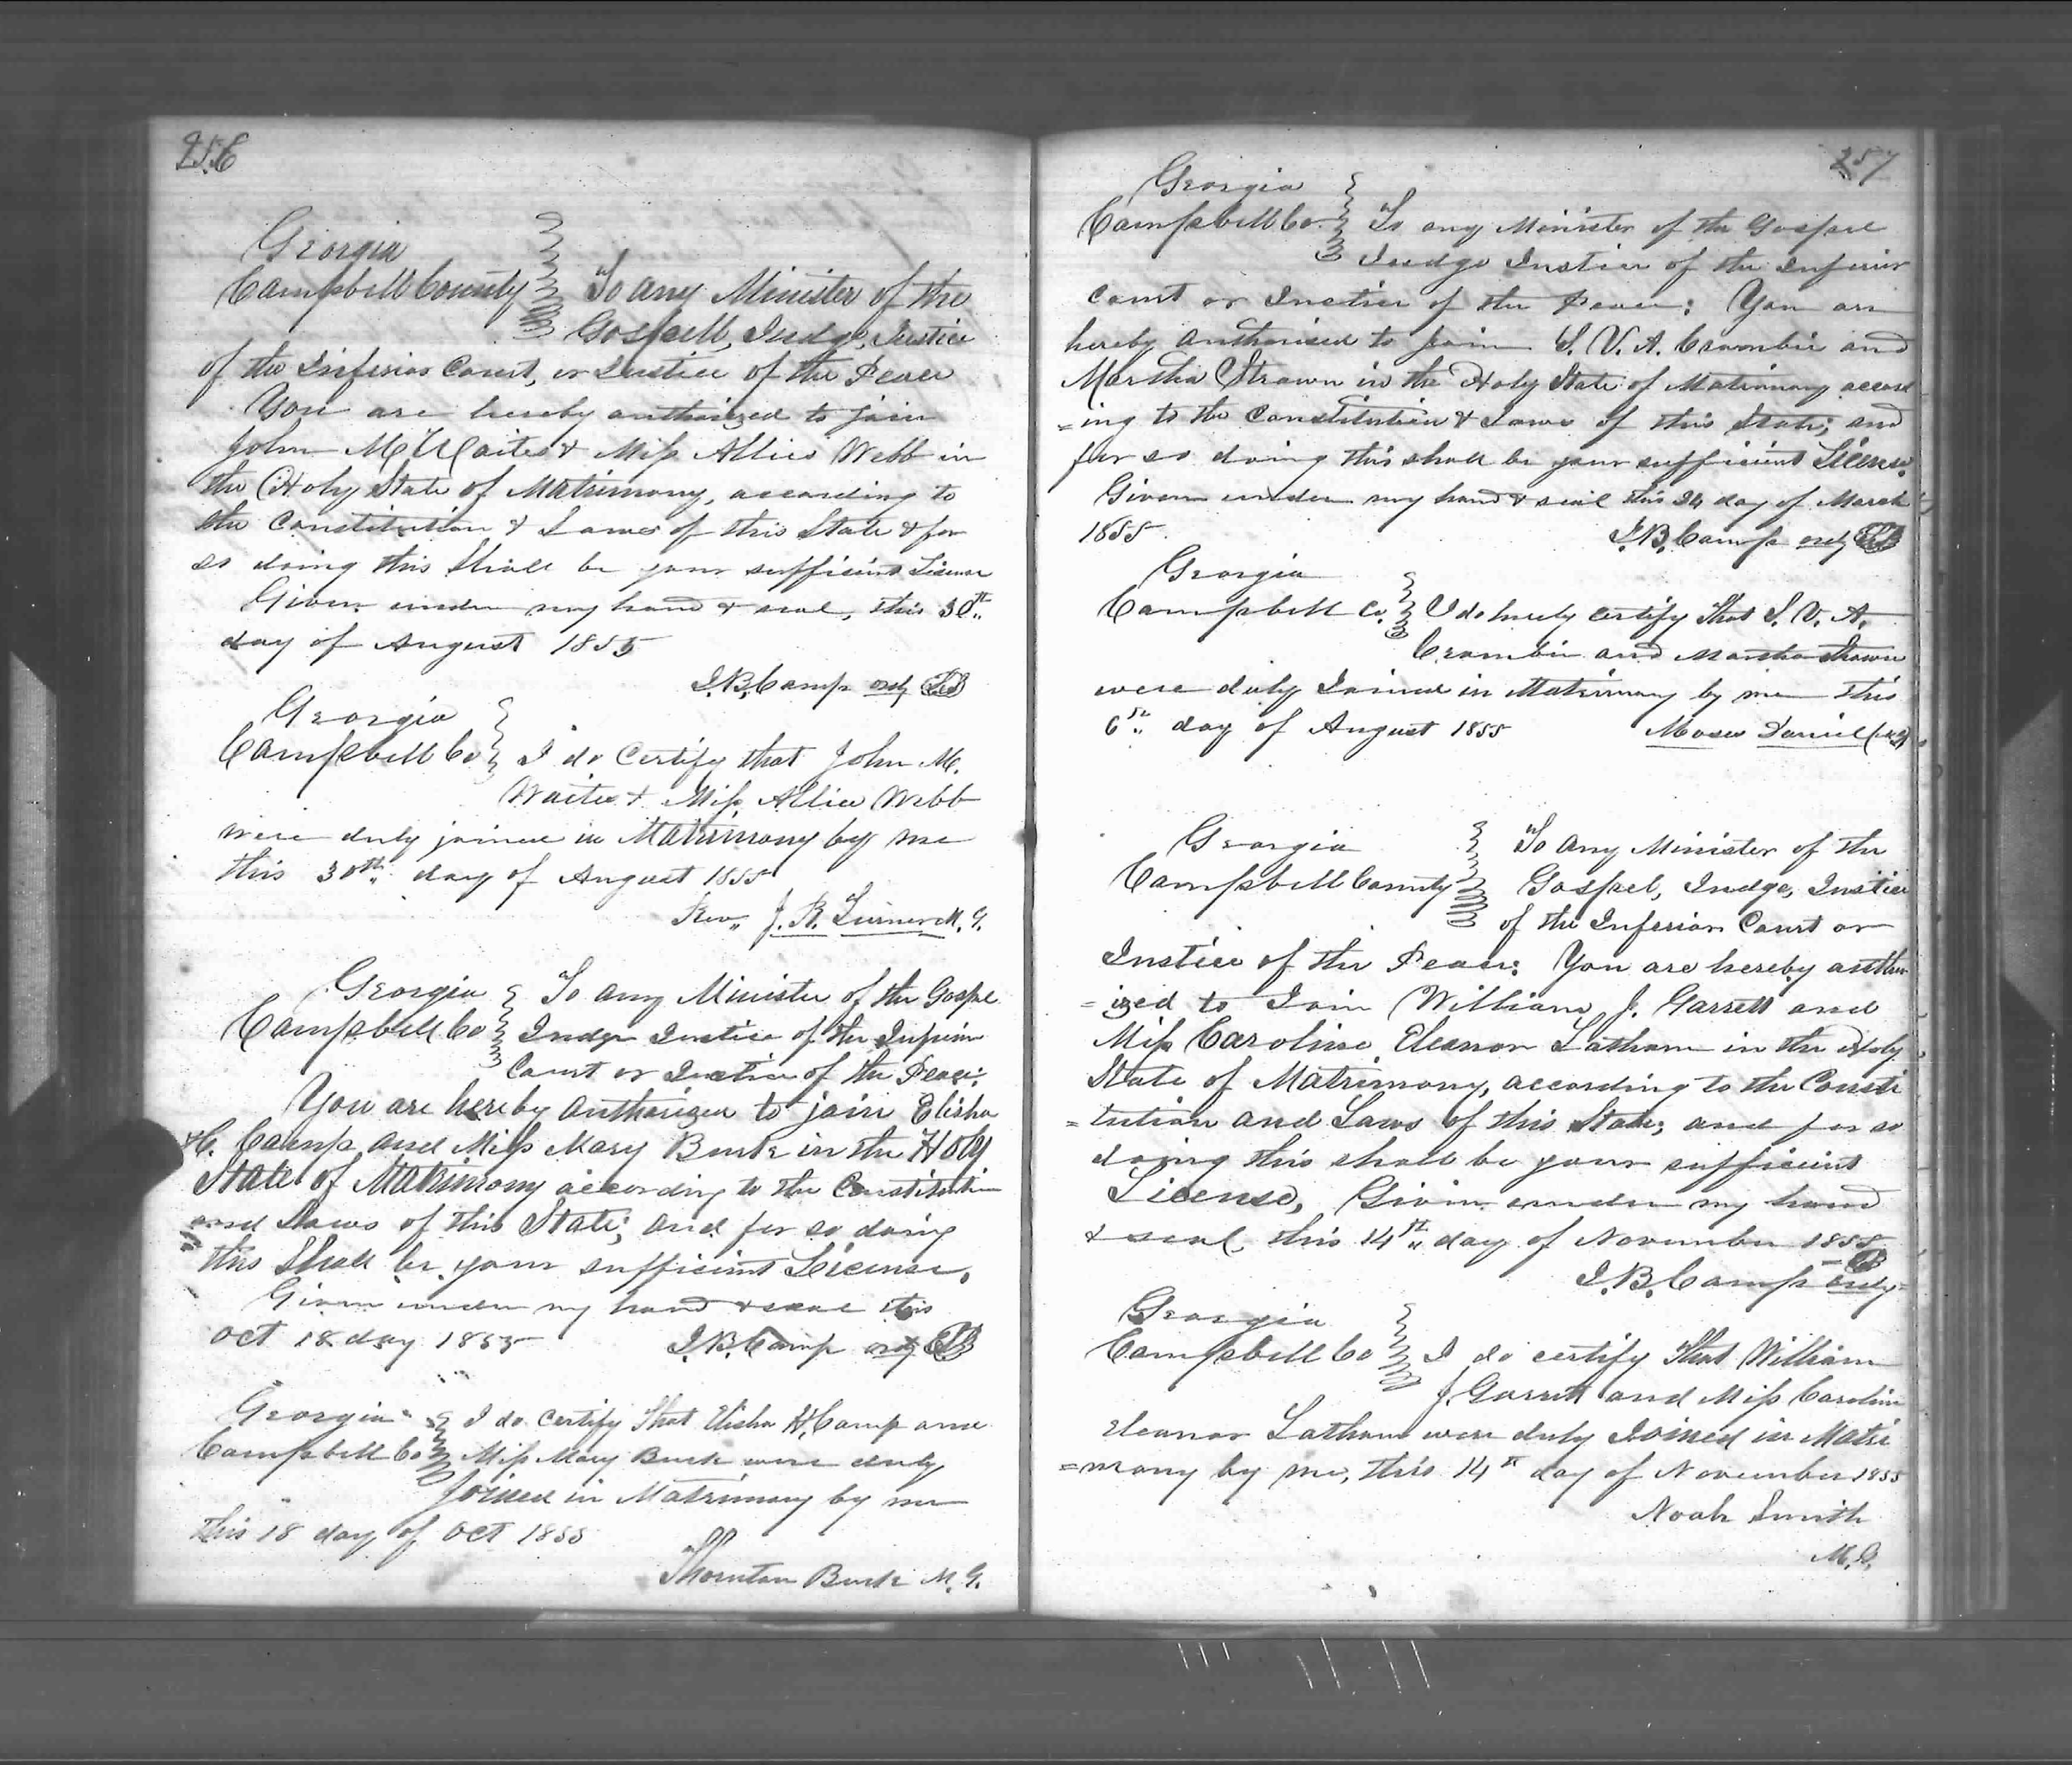 256
Georgia
Campbell County To any Minister of the
Gospell, Judge, Justice
of the Inferior Court, or Justice of the Peace
You are hereby authorized to join
John M Waites & Miss Allies Webb in
the Holy State of Matrimony, according to
the Constitution & Laws of this State & for
so doing this Shall be your sufficient License
Given under my hand & seal, this 30th
day of August 1855
J.B. Camp ordy LS
Georgia
Campbell Co I do Certify that John M.
Waites & Miss Allies Webb
were duly joined in Matrimony by me
this 30th day of August 1855
Rev J. R. Turner M. G.
Georgia To any Minister of the Gospel
Campbell Co Judge Justice of the Inferior
Court or Justice of the Peace:
You are hereby Authorized to join Elisha
H. Camp and Miss Mary Burk in the Holy
State of Matrimony according to the Constitution
and Laws of this State; and for so doing
this Shall be your sufficient License,
Given under my hand & seal this
Oct 18 day 1855 J.B. Camp ordy LS
Georgia I do Certify That Elisha H, Camp and
Campbell Co Miss Mary Burk were duly
Joined in Matrimony by me
this 18 day of Oct 1855
Thornton Burk M. G.
257
Georgia
Campbell Co. To any Minister of the Gospel
Judge Justice of the Inferior
Court or Justice of the Peace: You are
hereby Authorised to join S. V. A. Crombie and
Martha Strawn in the Holy State of Matrimony accord
=ing to the Constitution & Laws of this State; and
for so doing this shall be your sufficient License.
Given under my hand & seal this 24 day of March
1855. J.B. Camp ordy LS
Georgia
Campbell Co. I do hereby certify That S. V. A.
Crombie and Martha Strawn
were duly Joined in Matrimony by me this
6th day of August 1855 Moses Daniel
Georgia To Any Minister of the
Campbell County Gospel, Judge, Justice
of the Inferior Court or
Justice of the Peace: You are hereby author
=ized to Join William J. Garrett and
Miss Caroline Eleanor Latham in the Holy
State of Matrimony, according to the Consti
=tution and Laws of this State; and for so
doing this shall be your sufficient
License, Given under my hand
& seal this 14th day of November 1855
J.B. Camp ordy LS
Georgia
Campbell Co I do certify That William
J. Garrett and Miss Carolin
Eleanor Latham were duly Joined in Matri
=mony by me, this 14th day of November 1855
Noah Smith
M. G.